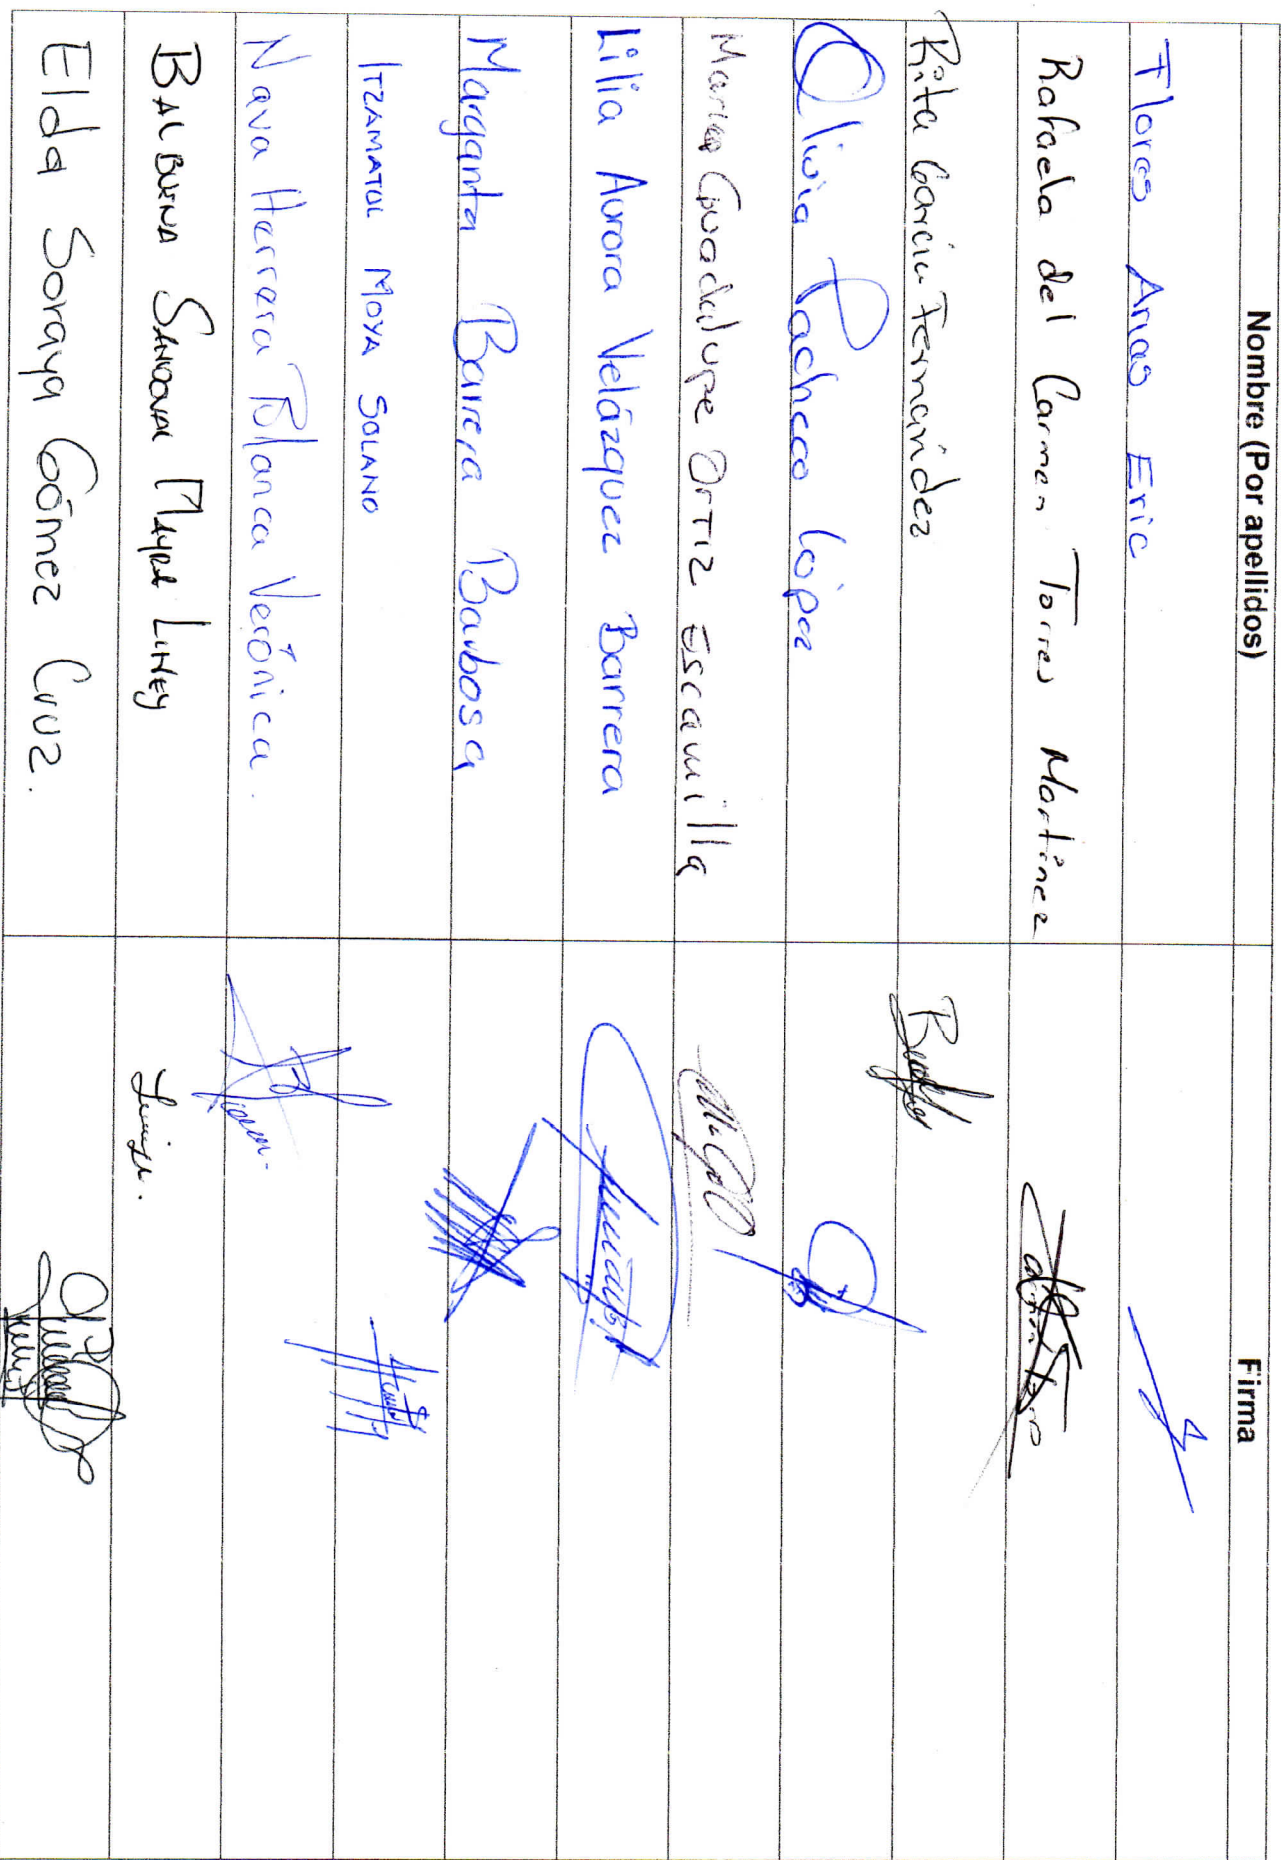 Nombre (Por apellidos) Firma
Flores Arias Eric
Rafaela del Carmen Torres Martínez
Rita García Fernández
Olivia Pacheco López
María Guadalupe Ortiz Escamilla
Lilia Aurora Velázquez Barrera
Margarita Barrera Barbosa
ITZAMATUL MOYA SOLANO
Nava Herrera Blanca Verónica.
BALBUENA SANDOVAL MAYRA
Elda Soraya Gómez Cruz.